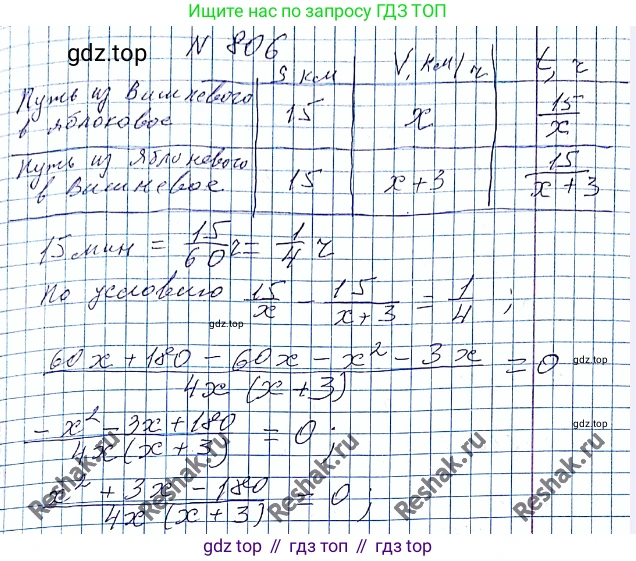 Ищите нас по запросу ГДЗ ТОП
gdz.top
N 806
S км V, км/ч t, ч
Путь из Вишневого в яблоковое 15 x 15/x
Путь из Яблоневого в Вишневое 15 x+3 15/(x+3)
15 мин = 15/60 ч = 1/4 ч
По условию 15/x - 15/(x+3) = 1/4 ;
gdz.top gdz.top
(60x + 180 - 60x - x² - 3x)/(4x (x+3)) = 0
gdz.top
(- x² - 3x + 180)/(4x (x+3)) = 0 ;
gdz.top
(x² + 3x - 180)/(4x (x+3)) = 0 ;
Reshak.ru Reshak.ru Reshak.ru Reshak.ru Reshak.ru
gdz.top // гдз.топ // гдз топ // gdz top